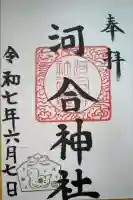 奉拝
河合神社
令和七年六月七日